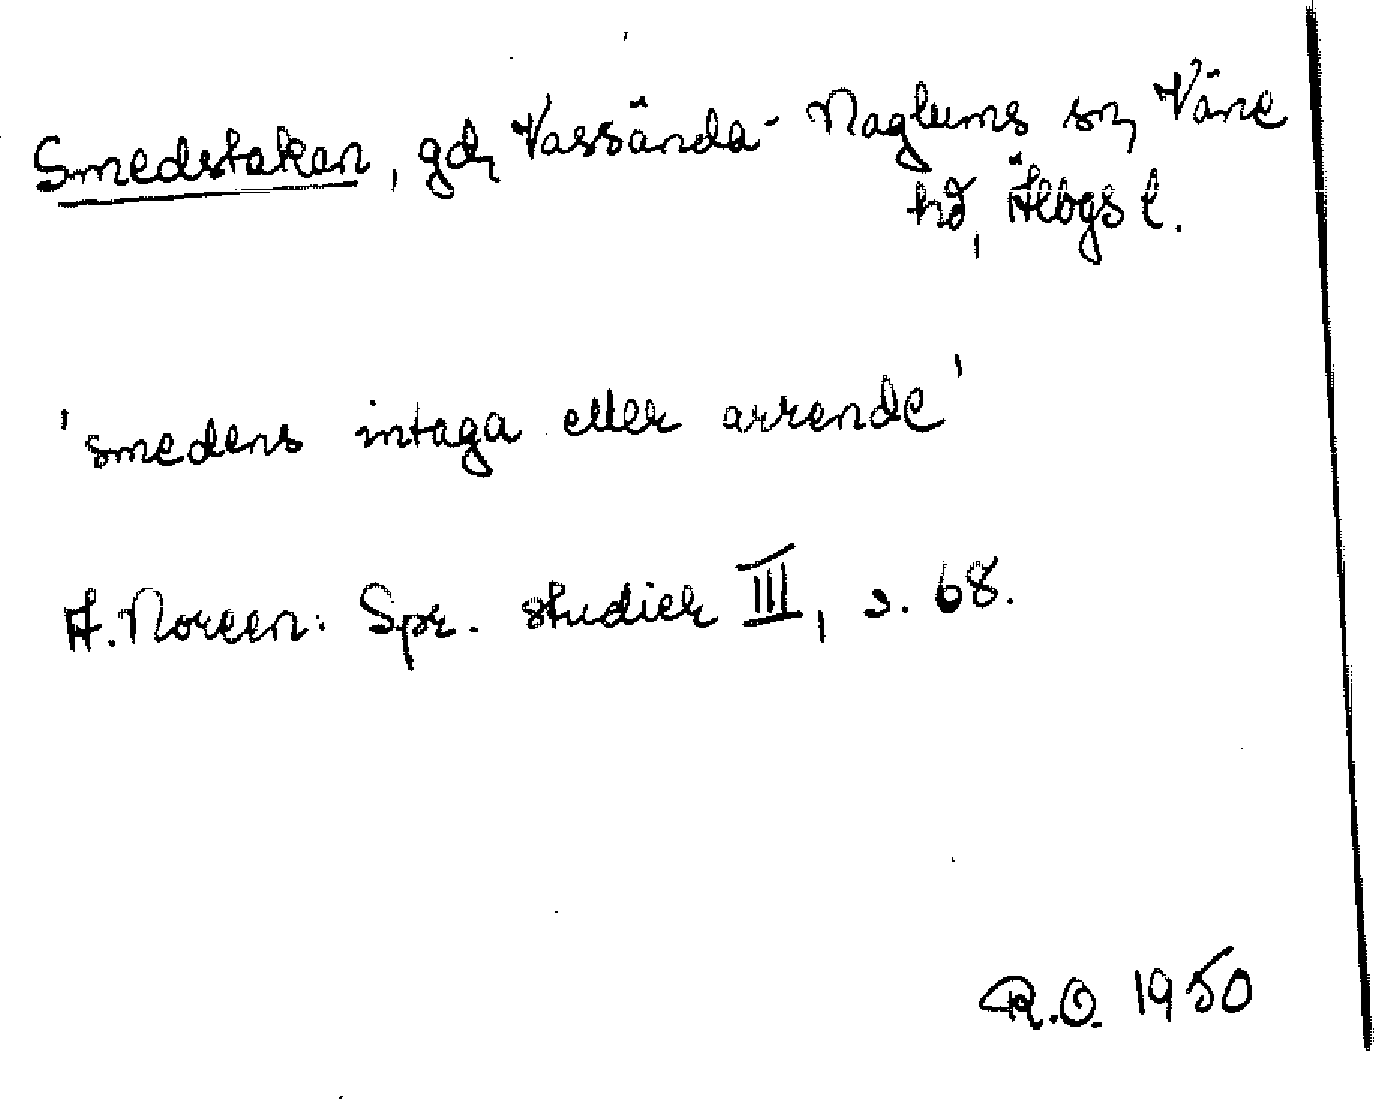 Smedstakan, gd, Vassända-Naglums sn, Väne
hd, Älvbgs l.
'smedens intaga eller arrende'
A. Noreen: Spr. studier III, s. 68.
R.O. 1950